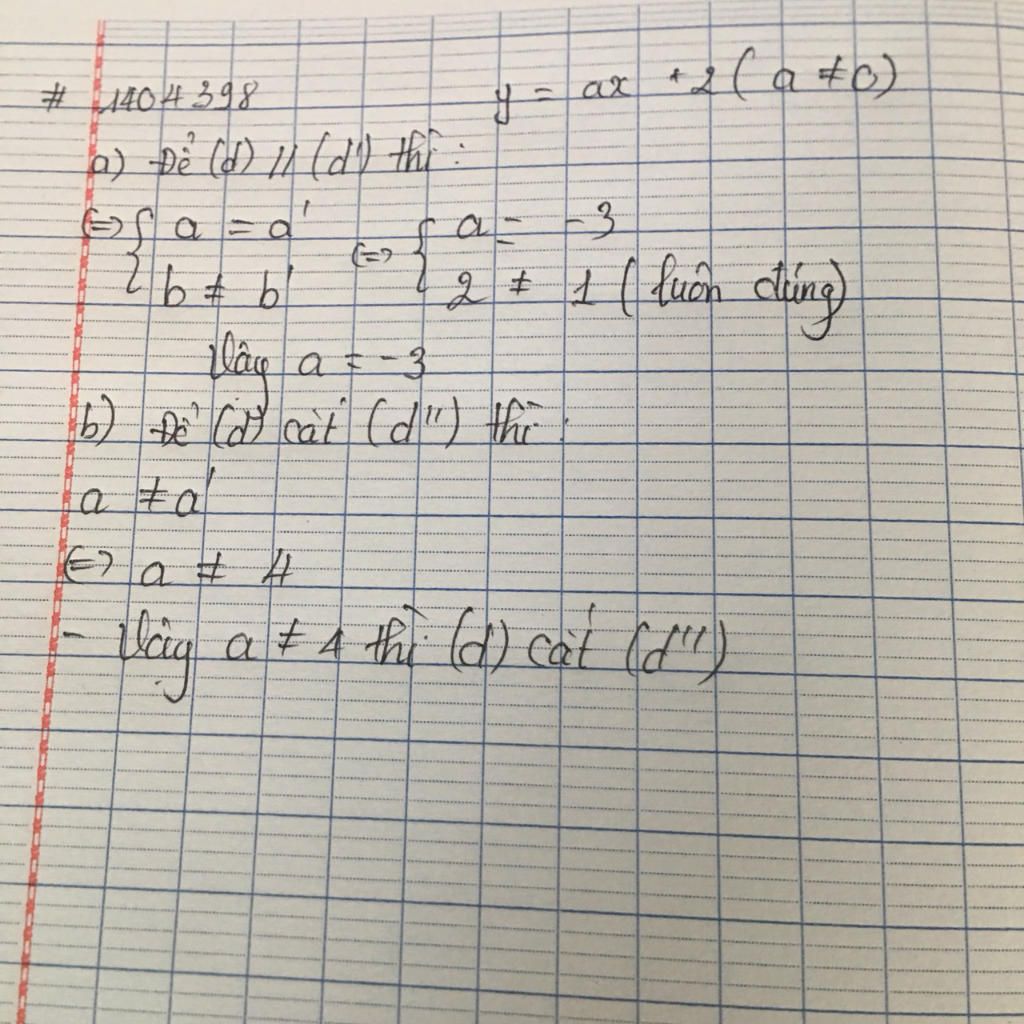 # 1404398 y = ax + 2 ( a ≠ 0 )
a) Để (d) // (d') thì :
<=> { a = a' <=> { a = -3
b ≠ b' 2 ≠ 1 ( luôn đúng)
Vậy a = -3
b) Để (d) cắt (d'') thì :
a ≠ a'
<=> a ≠ 4
- Vậy a ≠ 4 thì (d) cắt (d'')